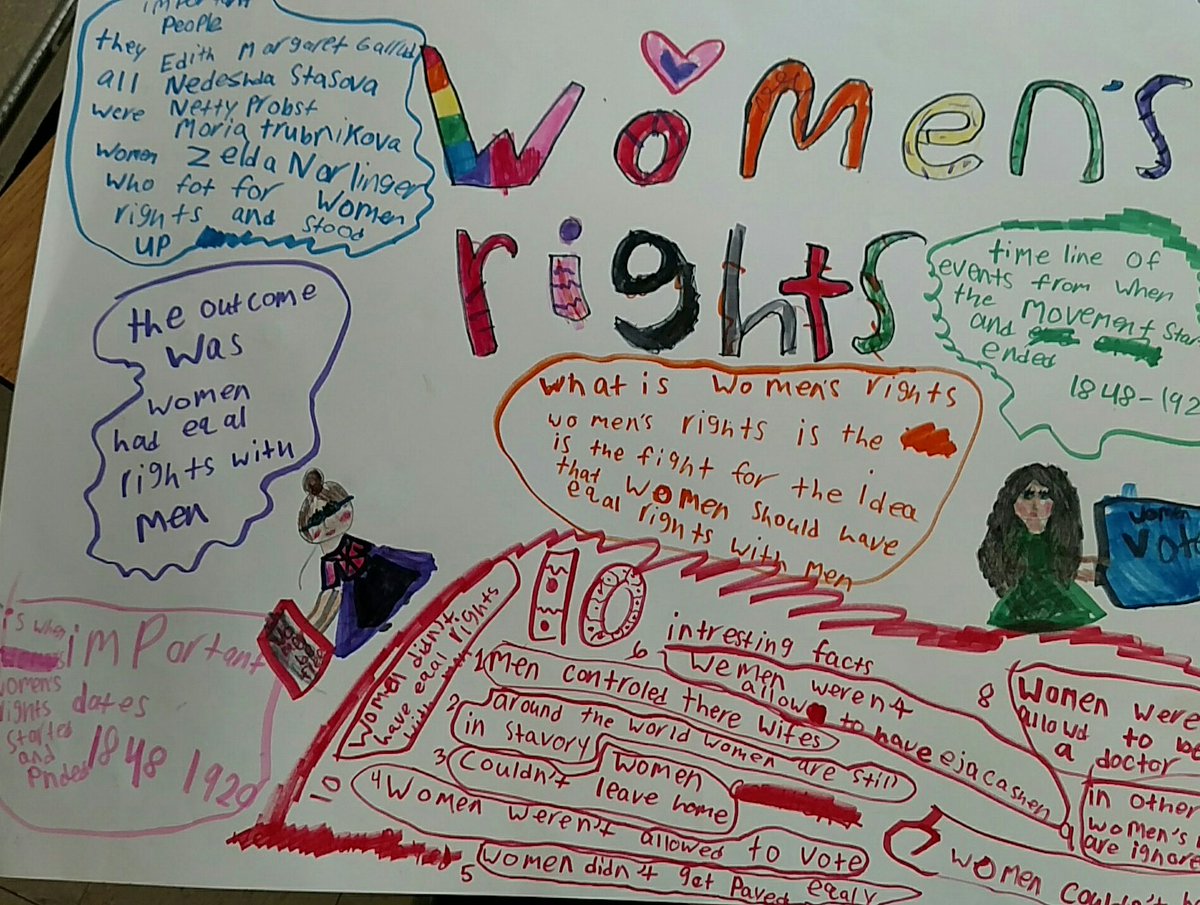 important
People
they Edith Margaret Garrud
all Nedeshda Stasova
were Netty Probst
Moria trubnikova
women Zelda Norlinger
who fot for Women
rights and stood
up
Women's
rights
time line of
events from when
the Movement star
and
ended
1848-192
the outcome
was
women
had eqal
rights with
men
what is women's rights
women's rights is the
is the fight for the idea
that women should have
eqal rights with men
women
vote
is when important
women's
rights dates
started
and 1848 1920
Pnded
10
intresting facts
1 men controled there wifes
2 around the world women are still
in stavory
3 Women
couldn't leave home
4 Women weren't allowed to vote
5 women didn't get Paved eqaly
6 we men weren4
allow to have ejacashen
8 Women were
allowd to be
a doctor
9 in other
women's
are ignore
women couldn't
10 women didn't
have eqal rights
with